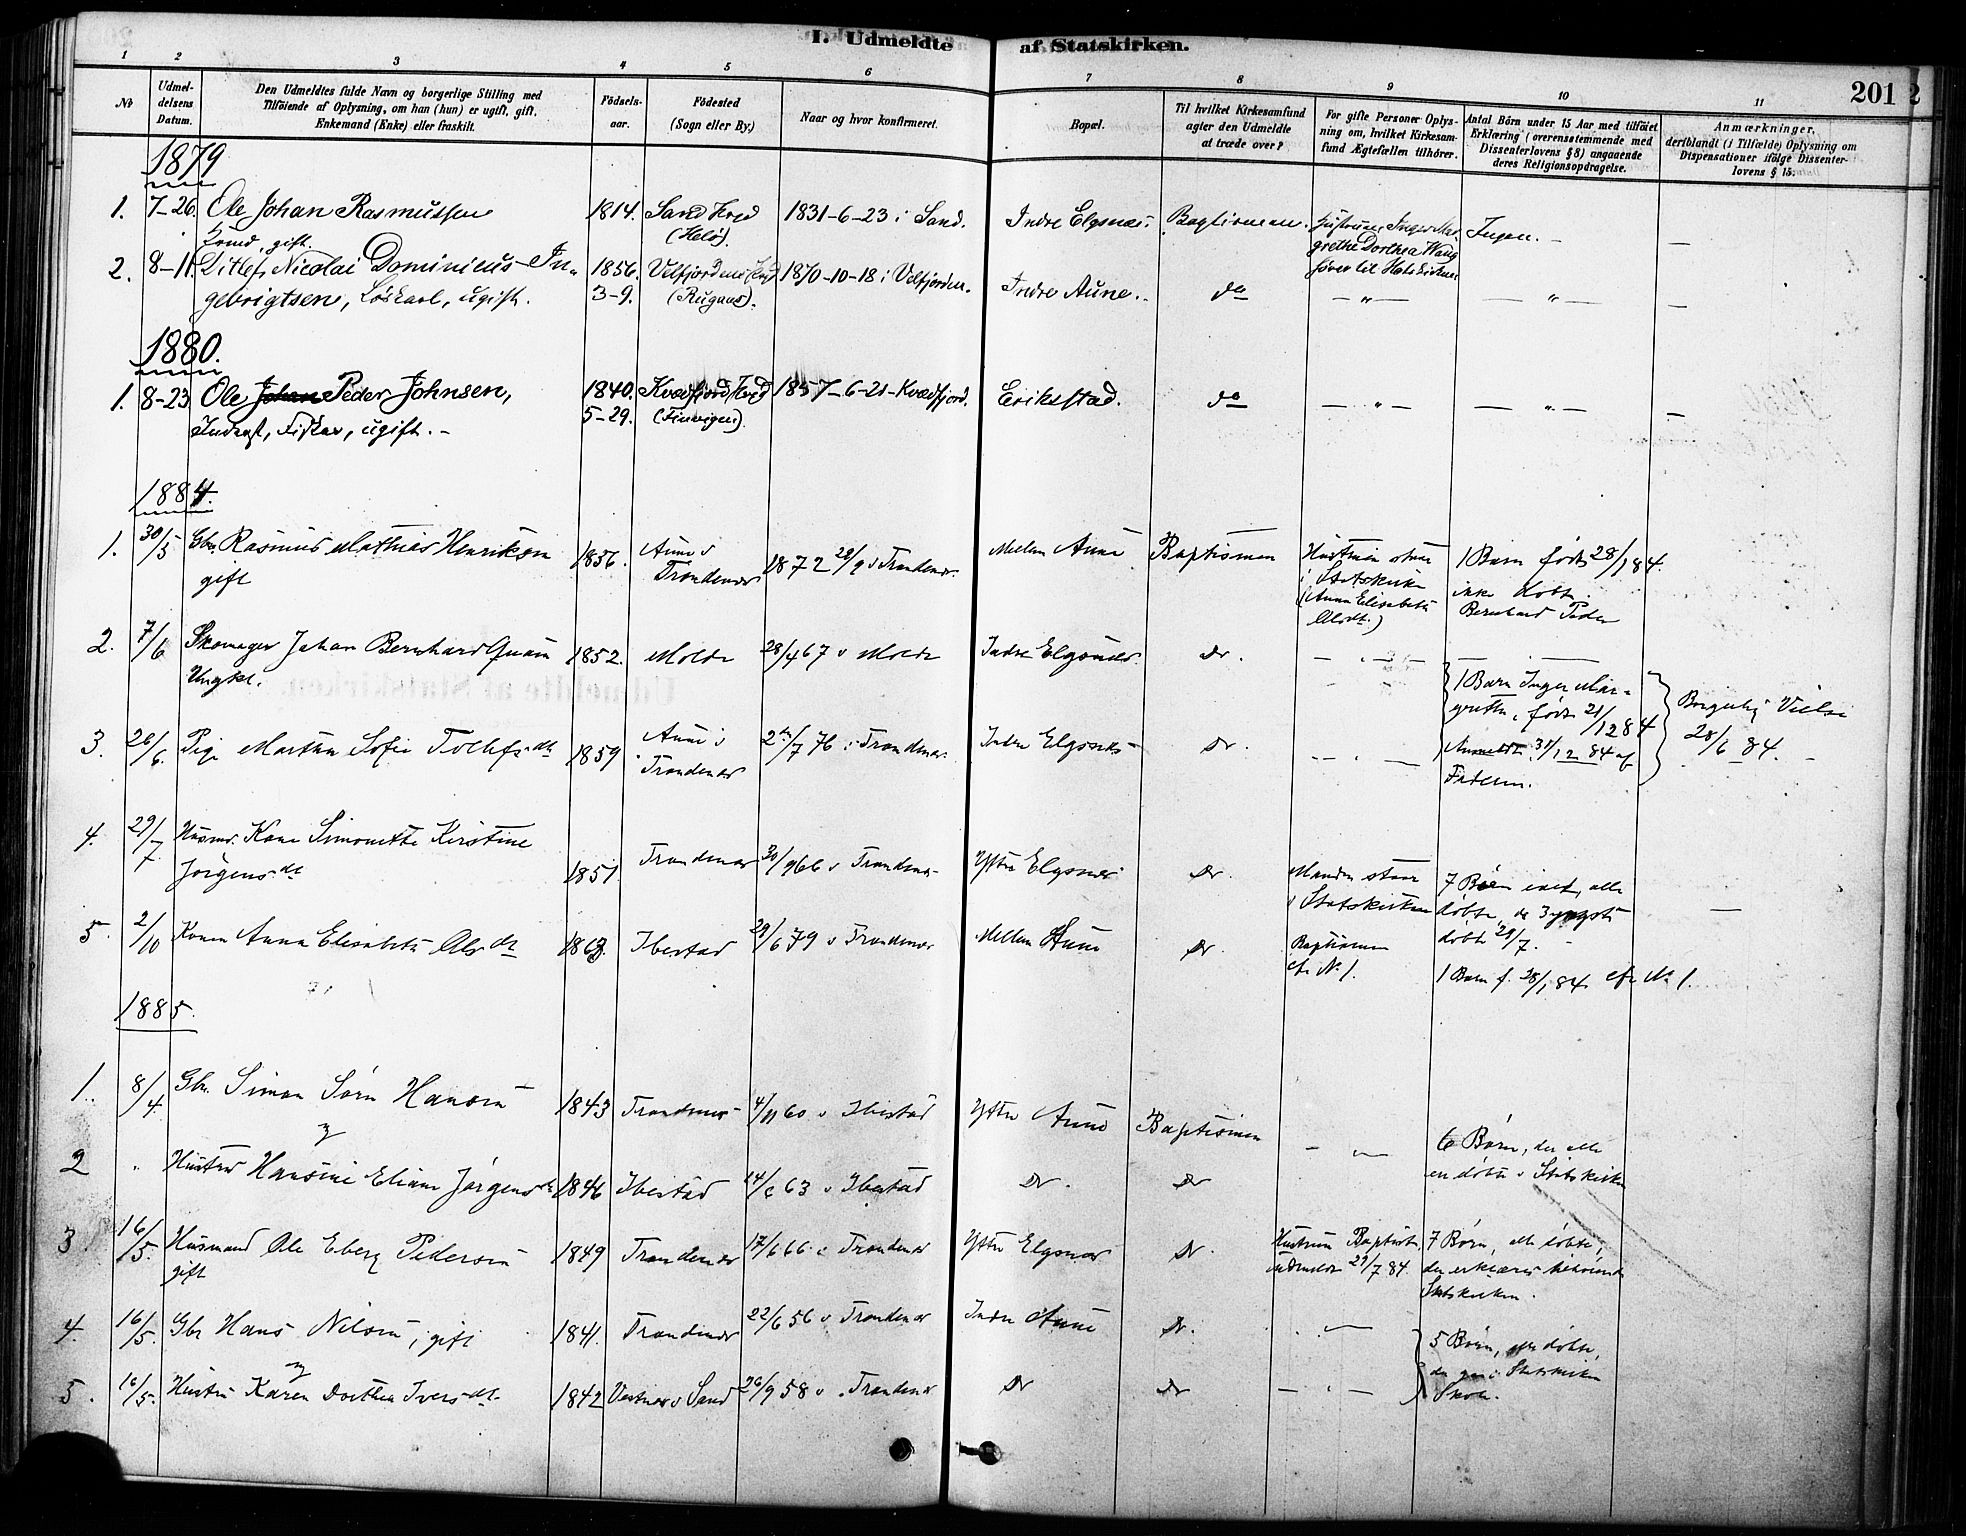 I. Udmeldte af Statskirken.
201
1 2 3 4 5 6 7 8 9 10 11
No
Udmel-
delsens
Datum.
Den Udmeldtes fulde Navn og borgerlige Stilling med
Tilføiende af Oplysning, om han (hun) er ugift, gift,
Enkemand (Enke) eller fraskilt.
Fødsels-
aar.
Fødested
(Sogn eller By.)
Naar og hvor konfirmeret.
Bopæl.
Til hvilket Kirkesamfund
agter den Udmeldte
at træde over?
For gifte Personer Oplys-
ning om, hvilket Kirkesam-
fund Ægtefællen tilhører.
Antal Børn under 15 Aar med tilføiet
Erklæring (overensstemmende med
Dissenterlovens § 8) angaaende
deres Religionsopdragelse.
Anmærkninger,
deriblandt (i Tilfælde) Oplysning om
Dispensationer ifølge Dissenter-
lovens § 15.
1879
1. 7-26. Ole Johan Rasmussen 1814. Sand 1831-6-23 i Sand. Indre Elgsnæs. Baptismen. Hustruen Inger Mar- Ingen. —
gift. grethe Dorthea Wang
2. 8-11. Ditlef Nicolai Dominicus In- 1856. Velfjordens 1870-10-18 i Velfjorden. Indre Aune. do — " — — " — —
gebrigtsen, Løskarl, ugift. 3-9.
1880.
1. 8-23 Ole Johan Peder Johnsen, 1840. Kvædfjord 1857-6-21-Kvædfjord. Erikstad. do — " — — " — —
Inderst, Fisker, ugift. 5-29.
1884.
1. 30/5 Gbr. Rasmus Mathias Henriksen 1856. Aune i Trondenæs 1872 i Trondenæs. Mellem Aune Baptismen Hustruen staar
gift i Statskirken
(Anna Elisabeth
Olsdt.)
1 Barn født 28/1 84.
ikke døbt.
Bernhard Peder
2. 7/6 Skomager Johan Bernhard Quam 1852. Molde 28/4 67 i Molde Indre Elgsnæs. do.
Ungkl.
3. 26/6. Pige Marthea Sofie Tollefsdt 1859 Aune i Trondenæs 76 i Trondenæs Indre Elgsnæs do.
1 Barn Inger Mar-
grethe, født 21/12 84
Anmeldt 31/12 84 af
Faderen.
Borgerlig Vielse
28/6 84.
4. 29/7 Husmd. Kone Simonette Kirstine
Jørgensdt 1851 Trondenæs 30/9 66 i Trondenæs Ytre Elgsnæs do. Manden staar
i Statskirken
7 Børn, alle
døbte, de 3 yngste
døbte 29/7. —
5. 2/10 Konen Anna Elisabeth Olsdt 1863. Ibestad 29/6 79 i Trondenæs Mellem Aune do Baptismen
cfr No 1.
1 Barn f. 28/1 84 cfr No 1.
1885.
1. 8/4 Gbr. Simon Sørn Hansen 1843 Trondenæs 4/11 60 i Ibestad Ytre Aune Baptismen
og
2 " Hustru Hansine Eliane Jørgensdt 1846 Ibestad 63 i Ibestad do. do
6 Børn, der alle
ere døbte i Statskirken
3. 16/5. Husmand Ole Eberg Pedersen 1849 Trondenæs 17/6 66 i Trondenæs Ytre Elgsnæs do. Hustruen Baptist,
gift udmeldt 29/7 84.
7 Børn, alle døbte,
der erklæres tilhørende
Statskirken.
4. 16/5. Gbr Hans Nilsen, gift 1841. Trondenæs 22/6 56 i Trondenæs Indre Aune do.
og
5. 16/5. Hustru Karen Dorthea Iversdt. 1842 i Sand 26/9 58 i Trondenæs do do
5 Børn, alle døbte,
Statskirken
Skole.